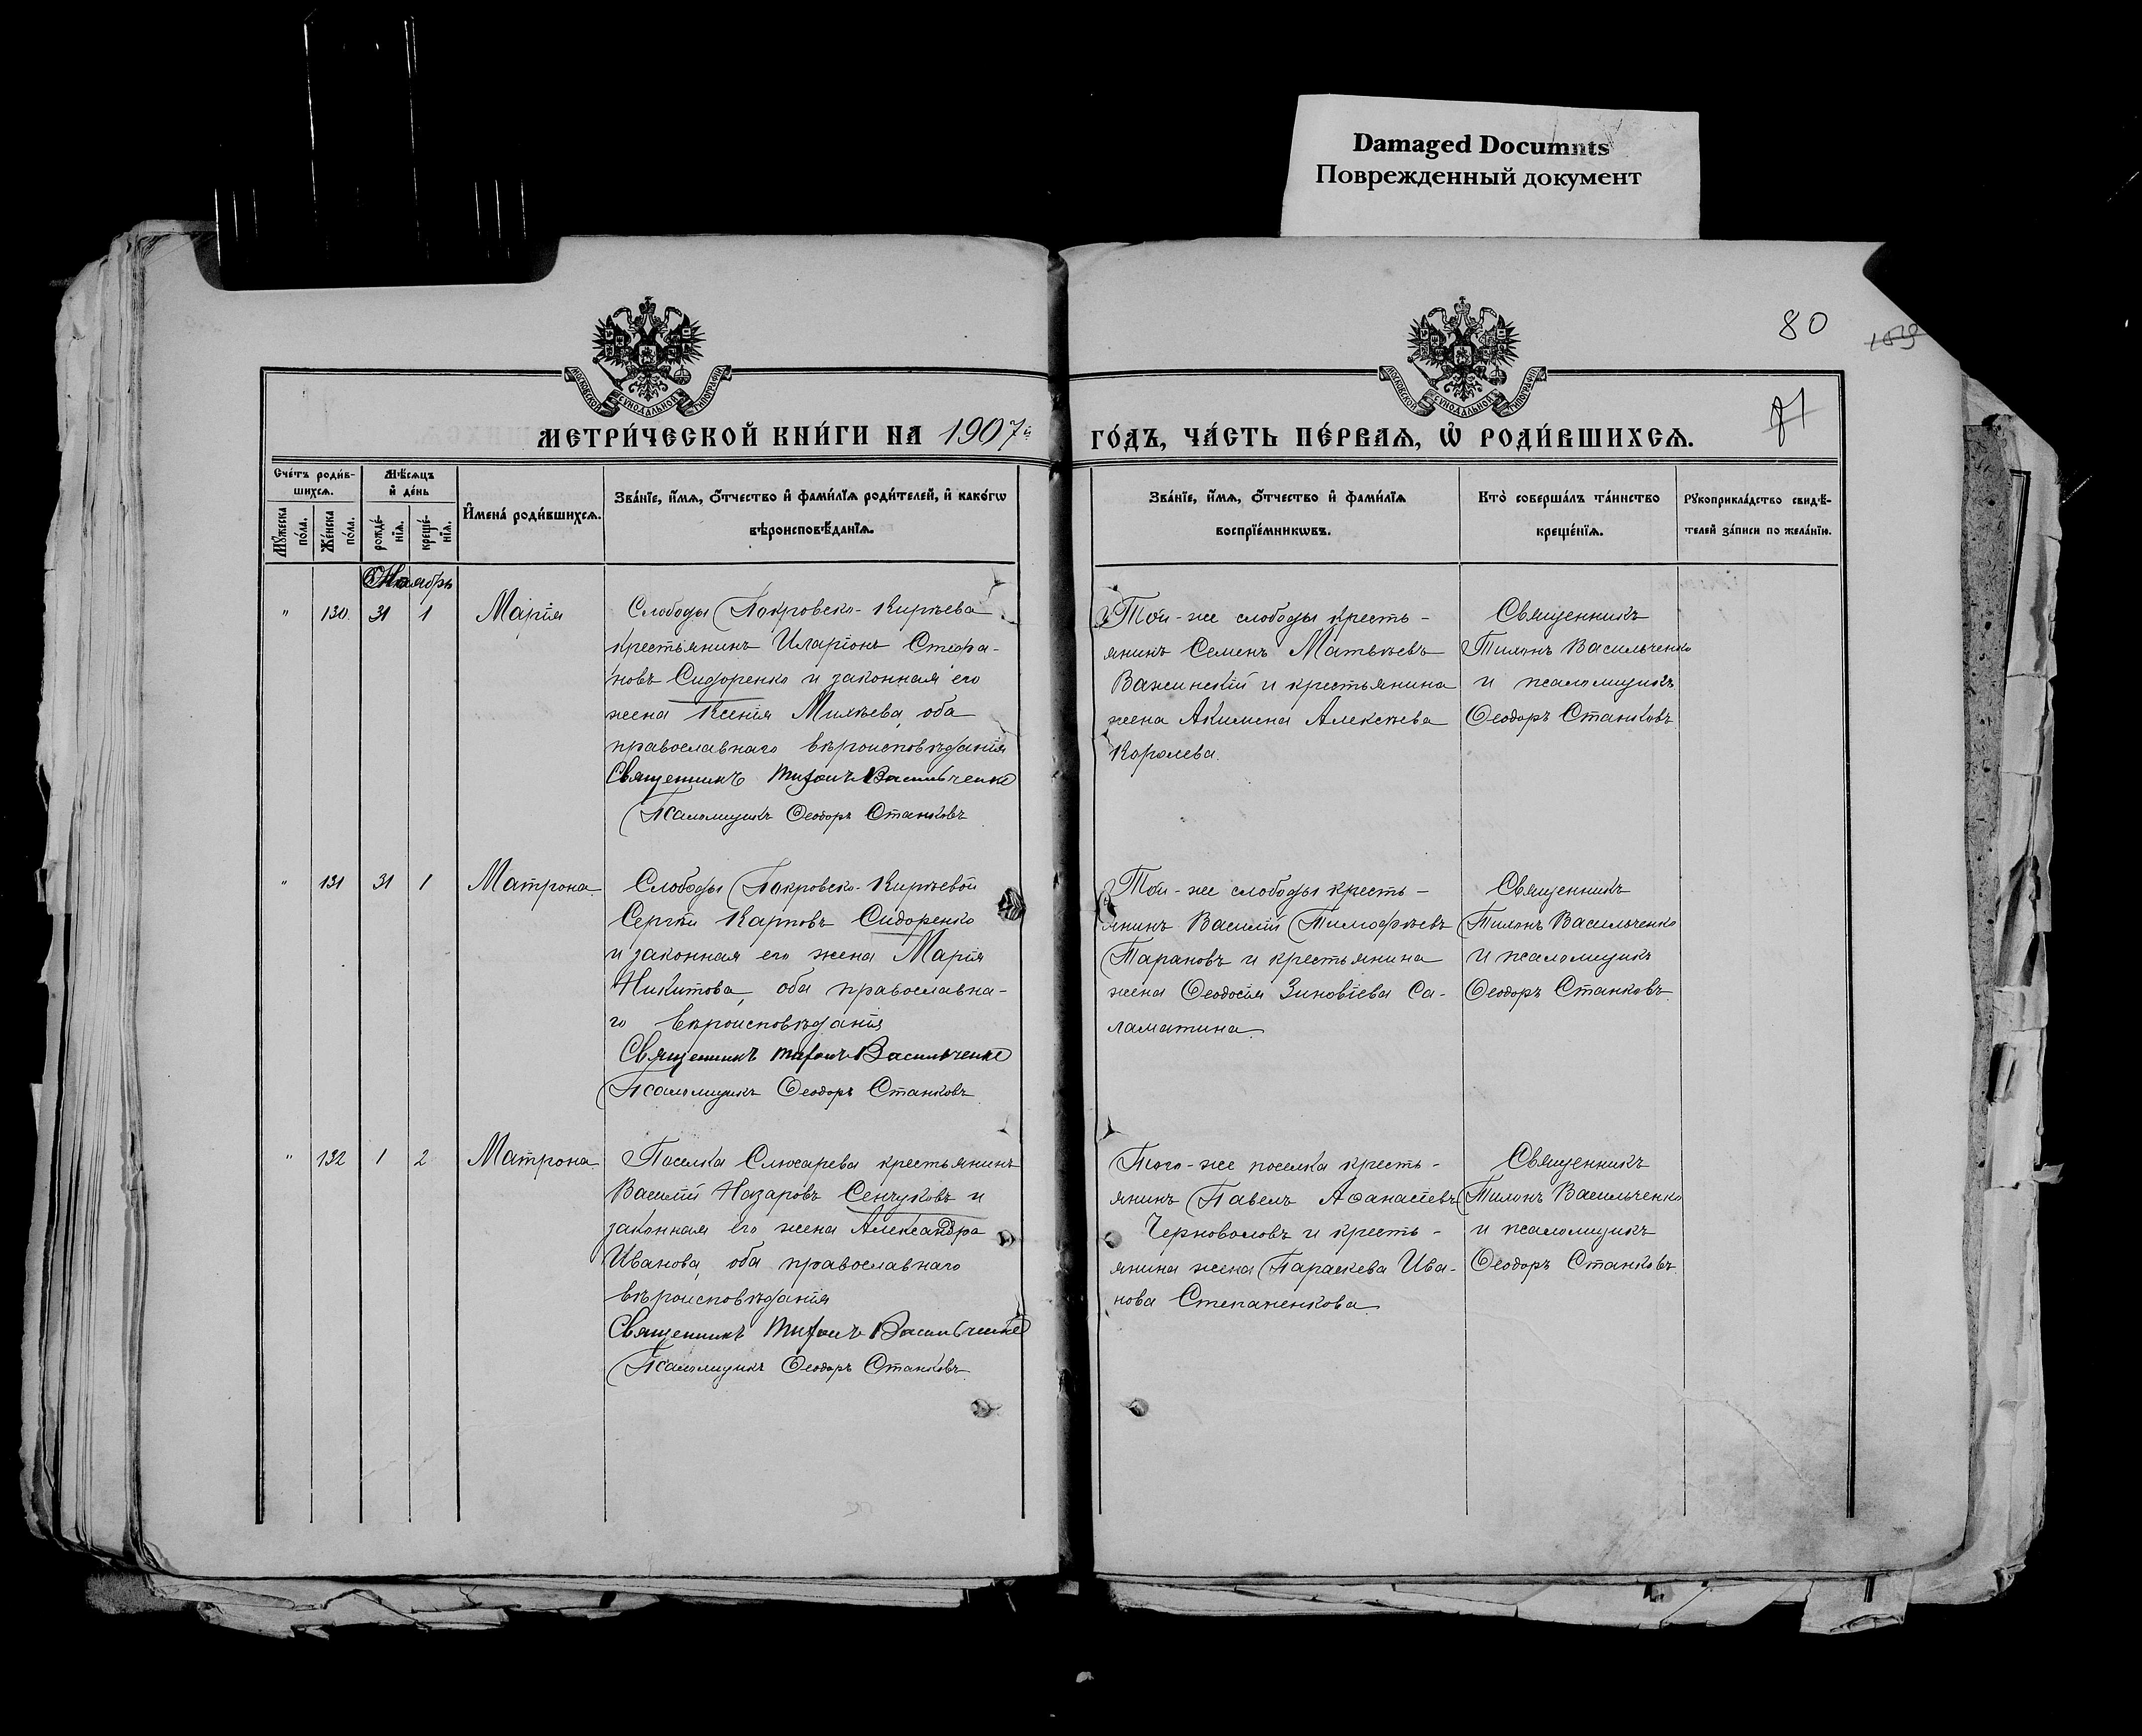 Damaged Documnts
Поврежденный документ
80
159
81
МОСКОВСКОЙ СУНОДАЛЬНОЙ ТИПОГРАФІИ
МОСКОВСКОЙ СУНОДАЛЬНОЙ ТИПОГРАФІИ
МЕТРИ́ЧЕСКОЙ КНИ́ГИ НА 1907й ГО́ДЪ, ЧА́СТЬ ПЕ́РВАѦ, Ѽ РОДИ́ВШИХСѦ.
Сче́тъ роди́в-
шихсѧ.
Мѣ́сѧцъ
и҆ де́нь
Мꙋ́жеска по́ла.
Же́нска по́ла.
рожде́-
нїѧ.
креще́-
нїѧ.
И҆мена́ роди́вшихсѧ.
Зва́нїе, и҆́мѧ, ѻ҆́тчество и҆ фами́лїѧ роди́телей, и҆ како́гѡ
вѣроисповѣ́данїѧ.
Зва́нїе, и҆́мѧ, ѻ҆́тчество и҆ фами́лїѧ
воспрїе́мникѡвъ.
Кто̀ соверша́лъ та́инство
креще́нїѧ.
Рꙋкоприкла́дство свидѣ́-
телей за́писи по жела́нїю.
Ноябрь
" 130. 31 1 Марія
Слободы Покровско-Кирѣева
крестьянинъ Иларіонъ Стефа-
новъ Сидоренко и законная его
жена Ксенія Михѣева, оба
православнаго вѣроисповѣданія
Священникъ Тихонъ Васильченко
Псаломщикъ Ѳеодоръ Станковъ
Той-же слободы кресть-
янинъ Семенъ Матвѣевъ
Важинскій и крестьянина
жена Акилина Алексѣева
Королева.
Священникъ
Тихонъ Васильченко
и псаломщикъ
Ѳеодоръ Станковъ
" 131 31 1 Матрона
Слободы Покровско-Кирѣевой
Сергій Карповъ Сидоренко
и законная его жена Марія
Никитова, оба православна-
го вѣроисповѣданія
Священникъ Тихонъ Васильченко
Псаломщикъ Ѳеодоръ Станковъ
Той-же слободы кресть-
янинъ Василій Тимофѣевъ
Тарановъ и крестьянина
жена Ѳеодосія Зиновіева Са-
ламатина
Священникъ
Тихонъ Васильченко
и псаломщикъ
Ѳеодоръ Станковъ
" 132 1 2 Матрона
Поселка Слюсарева крестьянинъ
Василій Назаровъ Сенчуковъ и
законная его жена Александра
Иванова, оба православнаго
вѣроисповѣданія
Священникъ Тихонъ Васильченко
Псаломщикъ Ѳеодоръ Станковъ
Того-же поселка кресть-
янинъ Павелъ Аѳанасіевъ
Черноволовъ и кресть-
янина жена Параскева Ива-
нова Степаненкова
Священникъ
Тихонъ Васильченко
и псаломщикъ
Ѳеодоръ Станковъ